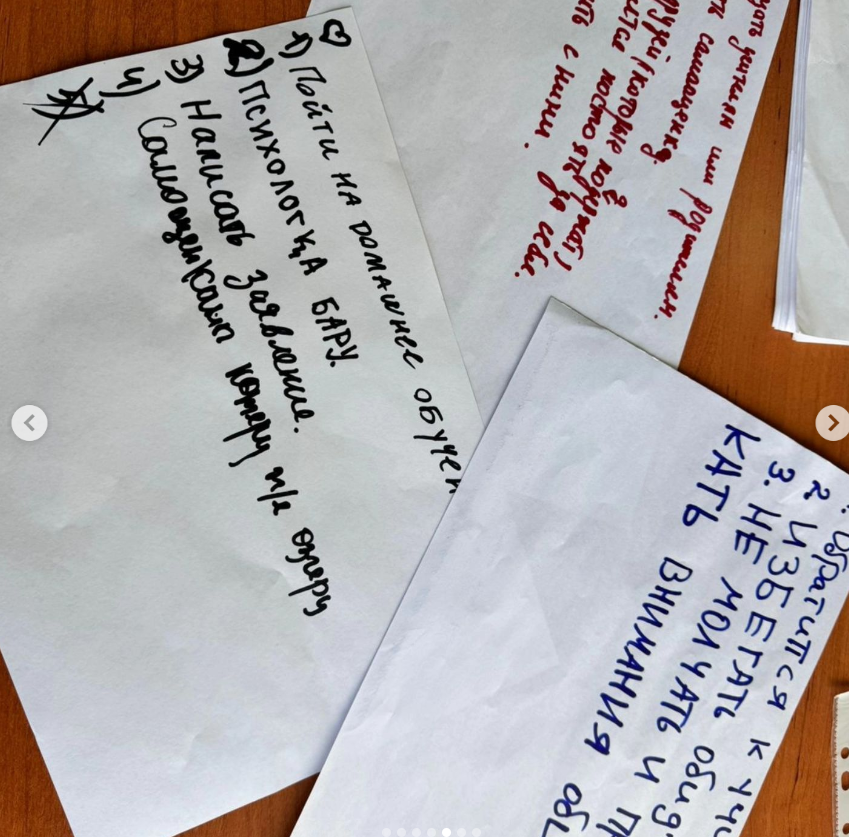 1) Пойти на домашнее обучен
2) ПСИХОЛОГҚА БАРУ.
3) Написать заявление.
4) Самооценкаңп көтеру п/е өзгеру
5)
учителям или родителям.
ть самооценку.
друзей (которые помогут)
постоять за себя.
ть с ними.
1. Обратится к учи
2. ИЗБЕГАТЬ обид
3. НЕ МОЛЧАТЬ И ПР
КАТЬ ВНИМАНИЯ ОБ